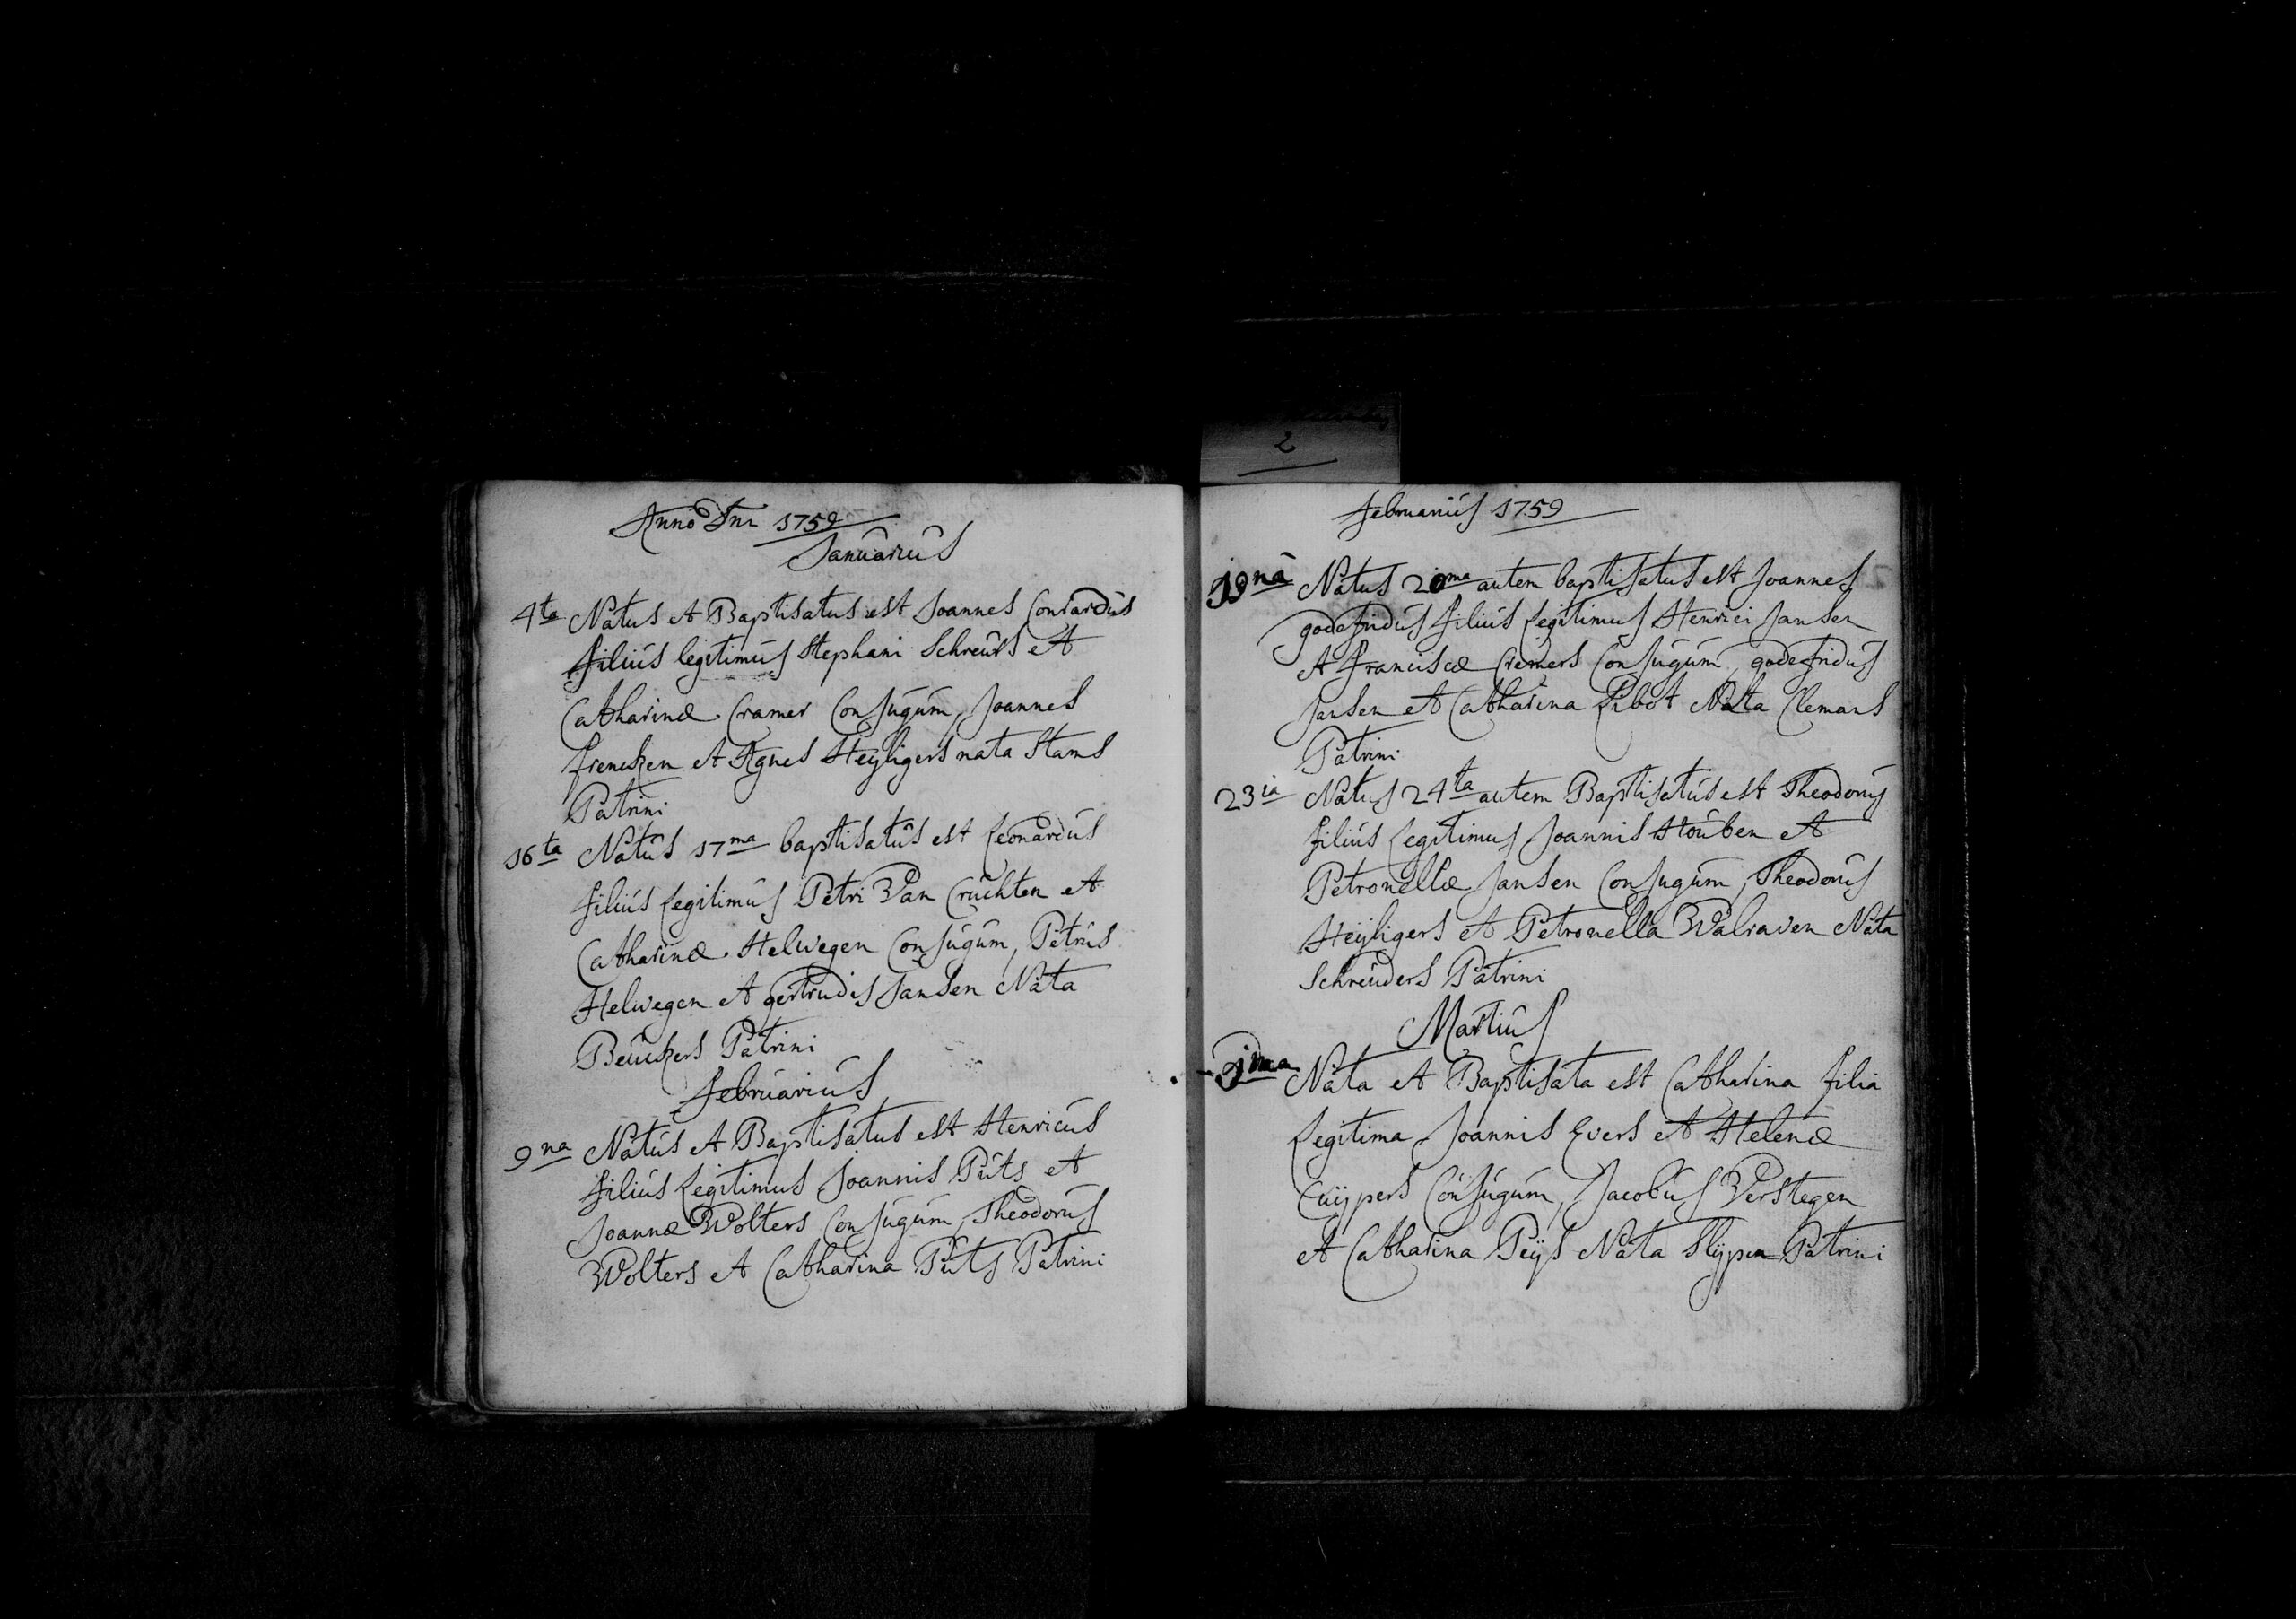 2
Anno Dni 1759
Januarius
4ta Natus et Baptisatus est Joannes Conrardus
filius legitimus Stephani Schreurs et
Catharinæ Cramer Conjugum, Joannes
frencken et Agnes Heyligers nata Stams
Patrini
16ta Natus 17ma baptisatus est Leonardus
filius Legitimus Petri Van Cruchten et
Catharinæ Helwegen Conjugum, Petrus
Helwegen et gertrudis Jansen Nata
Beuckers Patrini
februarius
9na Natus et Baptisatus est Henricus
filius Legitimus Joannis Puts et
Joannæ Wolters Conjugum, Theodorus
Wolters et Catharina Puts Patrini
februarius 1759
19na Natus 20ma autem baptisatus est Joannes
godefridus filius Legitimus Henrici Jansen
et franciscæ Cremers Conjugum, godefridus
Jansen et Catharina Libot Nata Clemans
Patrini
23ia Natus 24ta autem Baptisatus est Theodorus
filius Legitimus Joannis Houben et
Petronellæ Jansen Conjugum, Theodorus
Heyligers et Petronella Walraven Nata
Schreuders Patrini
Martius
1ma Nata et Baptisata est Catharina filia
Legitima Joannis Evers et Helenæ
Cuypers Conjugum, Jacobus Verstegen
et Catharina Peys Nata Slypen Patrini